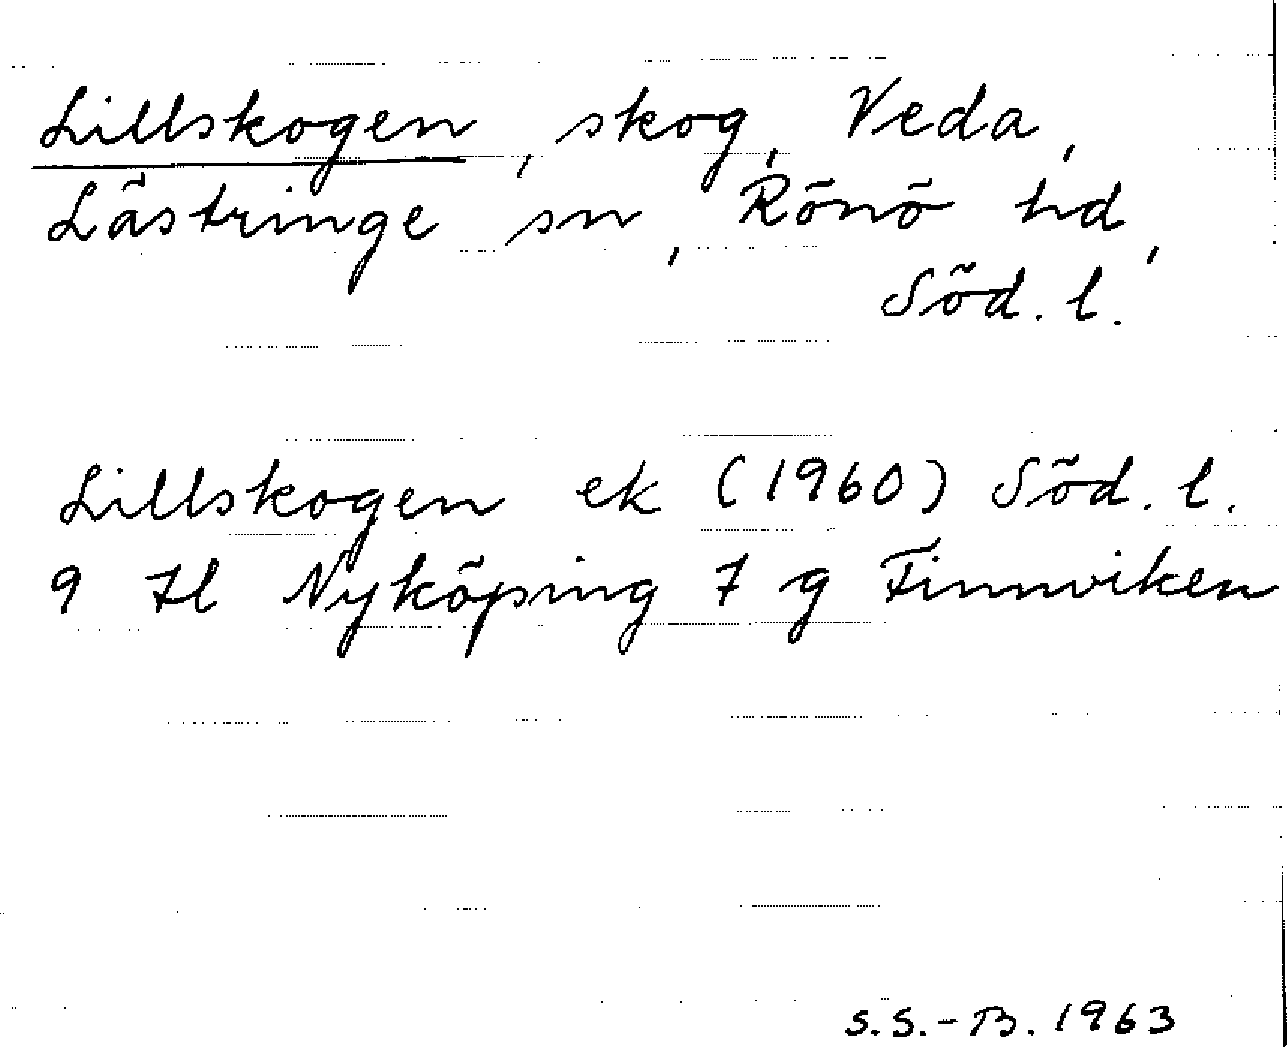 Lillskogen, skog, Veda,
Lästringe sn, Rönö hd,
Söd. l.
Lillskogen ek (1960) Söd. l.
9 Hl Nyköping 7 g Finnviken
S.S.-B. 1963